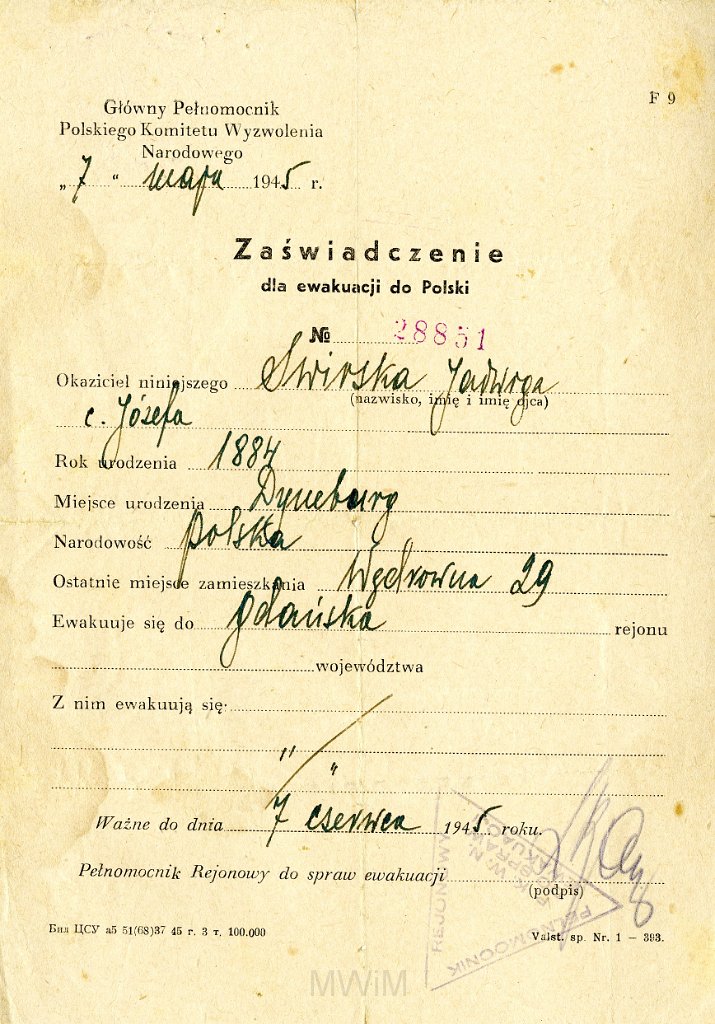 F 9
Główny Pełnomocnik
Polskiego Komitetu Wyzwolenia
Narodowego
„ 7 “ maja 1945 r.
Zaświadczenie
dla ewakuacji do Polski
№ 28851
Okaziciel niniejszego Swirska Jadwiga
(nazwisko, imię i imię ojca)
c. Józefa
Rok urodzenia 1884
Miejsce urodzenia Dyneburg
Narodowość polska
Ostatnie miejsce zamieszkania Wędrowna 29
Ewakuuje się do Gdańska rejonu
województwa
Z nim ewakuują się:
"
"
Ważne do dnia 7 czerwca 1945 roku.
Pełnomocnik Rejonowy do spraw ewakuacji
(podpis)
REJONOWY
PEŁNOMOCNIK
Бил ЦСУ а5 51(68)37 45 г. 3 т. 100.000
Valst. sp. Nr. 1 – 393.
MWiM